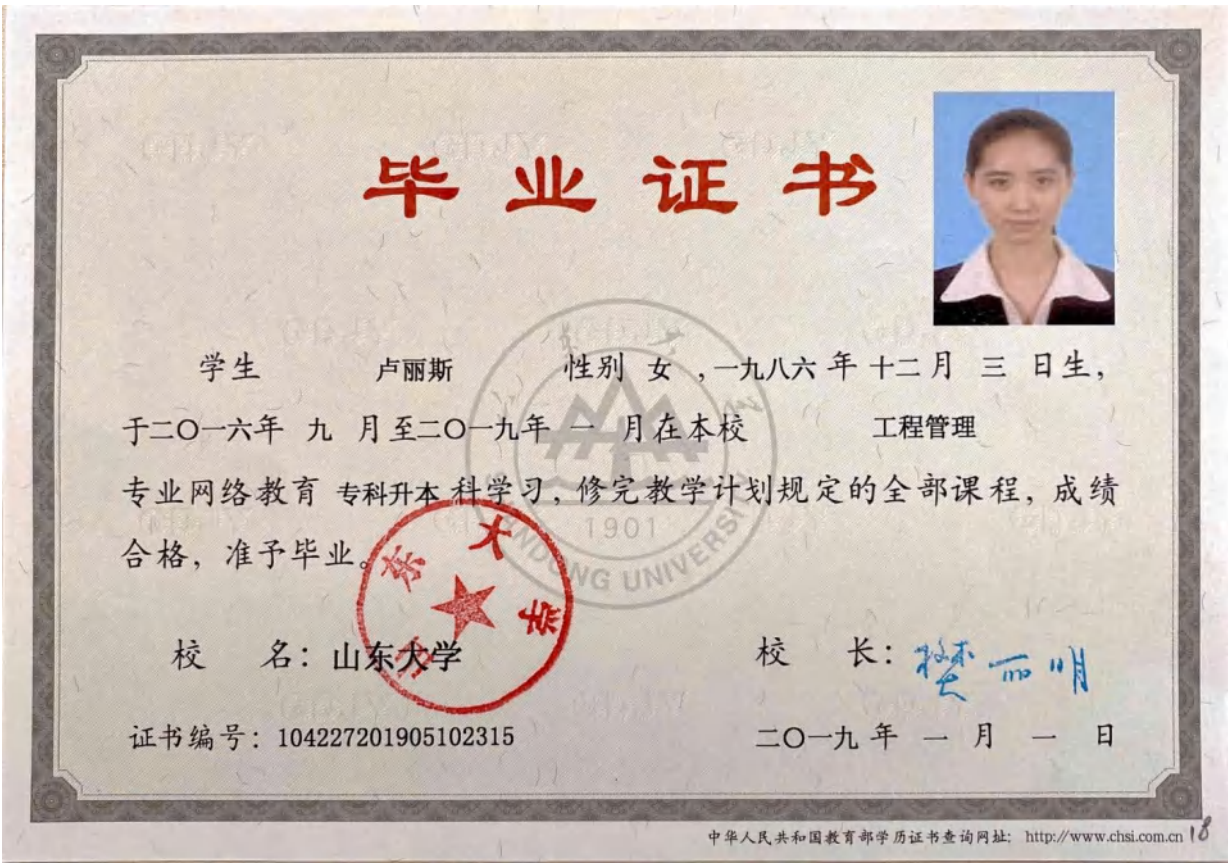 毕业证书
学生 卢丽斯 性别 女 ,一九八六 年 十二月 三 日生,
于二〇一六年 九 月至二〇一九年 一 月在本校 工程管理
专业网络教育 专科升本 科学习, 修完教学计划规定的全部课程, 成绩
合格, 准予毕业。
1901
SHANDONG UNIVERSITY
山东大学
校 名: 山东大学 校 长: 樊丽明
证书编号: 104227201905102315 二〇一九 年 一 月 一 日
中华人民共和国教育部学历证书查询网址: http://www.chsi.com.cn 18